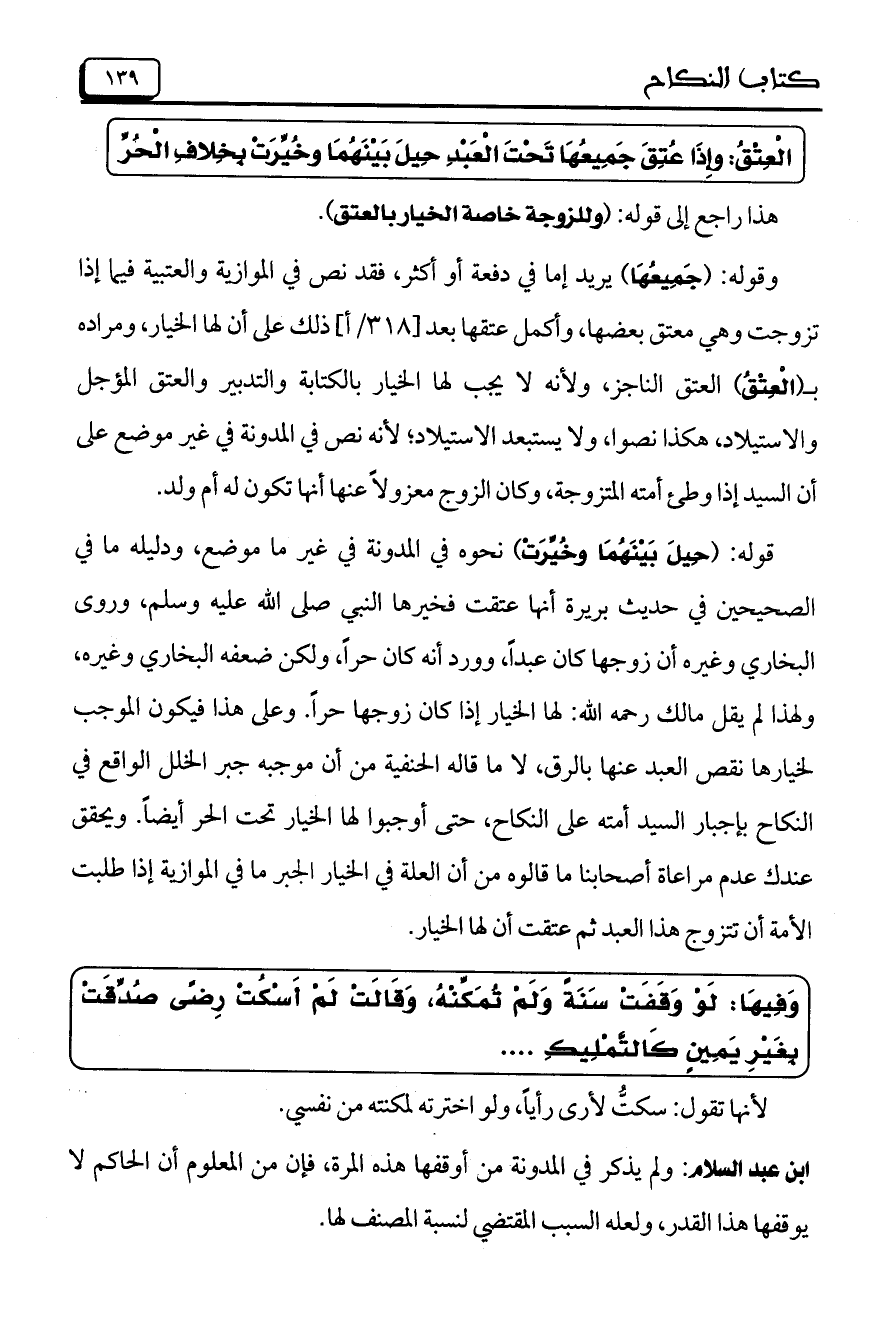 كتاب النكاح
١٣٩
الْعِتْقُ: وإِذَا عُتِقَ جَمِيعُهَا تَحْتَ الْعَبْدِ حِيلَ بَيْنَهُمَا وخُيِّرَتْ بِخِلافِ الْحُرِّ
هذا راجع إلى قوله: (وللزوجة خاصة الخيار بالعتق).
وقوله: (جَمِيعُهَا) يريد إما في دفعة أو أكثر، فقد نص في الموازية والعتبية فيما إذا
تزوجت وهي معتق بعضها، وأكمل عتقها بعد [٣١٨/ أ] ذلك على أن لها الخيار، ومراده
بـ(الْعِتْقُ) العتق الناجز، ولأنه لا يجب لها الخيار بالكتابة والتدبير والعتق المؤجل
والاستيلاد، هكذا نصوا، ولا يستبعد الاستيلاد؛ لأنه نص في المدونة في غير موضع على
أن السيد إذا وطئ أمته المتزوجة، وكان الزوج معزولاً عنها أنها تكون له أم ولد.
قوله: (حِيلَ بَيْنَهُمَا وخُيِّرَتْ) نحوه في المدونة في غير ما موضع، ودليله ما في
الصحيحين في حديث بريرة أنها عتقت فخيرها النبي صلى الله عليه وسلم، وروى
البخاري وغيره أن زوجها كان عبداً، وورد أنه كان حراً، ولكن ضعفه البخاري وغيره،
ولهذا لم يقل مالك رحمه الله: لها الخيار إذا كان زوجها حراً. وعلى هذا فيكون الموجب
لخيارها نقص العبد عنها بالرق، لا ما قاله الحنفية من أن موجبه جبر الخلل الواقع في
النكاح بإجبار السيد أمته على النكاح، حتى أوجبوا لها الخيار تحت الحر أيضاً. ويحقق
عندك عدم مراعاة أصحابنا ما قالوه من أن العلة في الخيار الجبر ما في الموازية إذا طلبت
الأمة أن تتزوج هذا العبد ثم عتقت أن لها الخيار.
وَفِيهَا: لَوْ وَقَفَتْ سَنَةً وَلَمْ تُمَكِّنْهُ، وَقَالَتْ لَمْ أَسْكُتْ رِضًى صُدِّقَتْ
بِغَيْرِ يَمِينٍ كَالتَّمْلِيكِ ....
لأنها تقول: سكتُّ لأرى رأياً، ولو اخترته لمكنته من نفسي.
ابن عبد السلام: ولم يذكر في المدونة من أوقفها هذه المرة، فإن من المعلوم أن الحاكم لا
يوقفها هذا القدر، ولعله السبب المقتضي لنسبة المصنف لها.